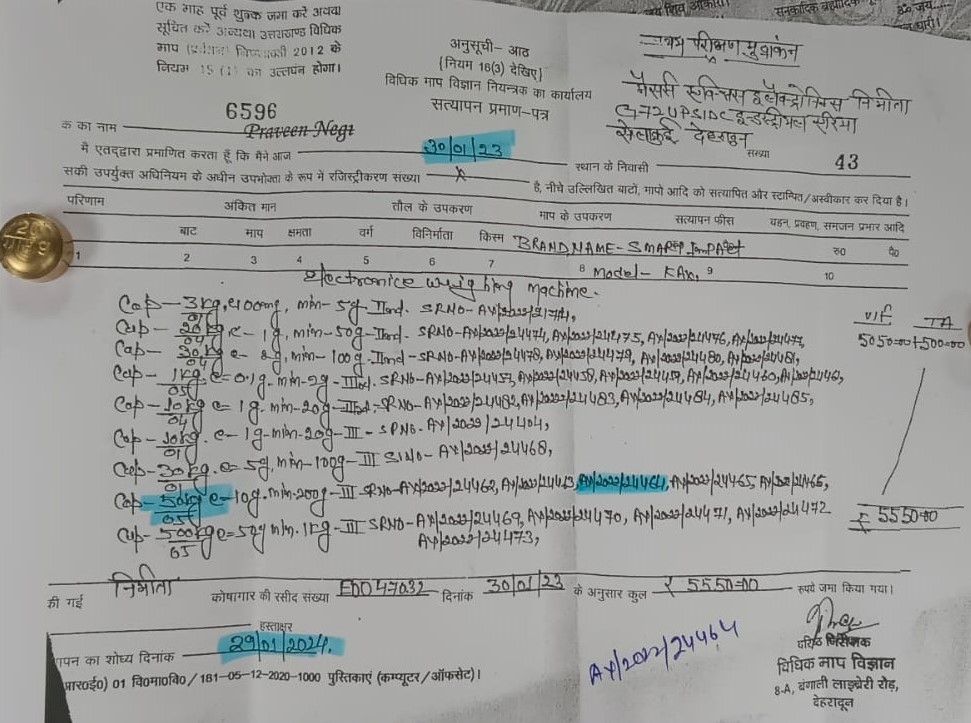 एक माह पूर्व शुल्क जमा करें अथवा
सूचित करें अन्यथा उत्तराखण्ड विधिक
माप (प्रवर्तन) नियमावली 2012 के
नियम 15 (1) का उल्लघंन होगा।
अनुसूची- आठ
{नियम 16(3) देखिए}
विधिक माप विज्ञान नियन्त्रक का कार्यालय
सत्यापन प्रमाण-पत्र
परीक्षण मुद्रांकन
मैसर्स इलैक्ट्रोनिक्स निर्माता
UPSIDC इन्डस्ट्रीयल एरिया
सेलाकुई देहरादून
6596
क का नाम Praveen Negi
संख्या 43
में एतद्द्वारा प्रमाणित करता हूँ कि मैने आज 30/01/23 स्थान के निवासी
सकी उपर्युक्त अधिनियम के अधीन उपभोक्ता के रूप में रजिस्ट्रीकरण संख्या x है, नीचे उल्लिखित बाटों, मापो आदि को सत्यापित और स्टाम्पित/अस्वीकार कर दिया है।
परिणाम अंकित मान तौल के उपकरण माप के उपकरण सत्यापन फीस वहन, प्रवहण, समजन प्रभार आदि
बाट माप क्षमता वर्ग विनिर्माता किस्म BRAND NAME- SMART रु0 पै0
1 2 3 4 5 6 7 8 Model- 9 10
Electronice Weighing machine.
Cap- 3kg, e100mg, min- 5g- IInd. SRNO-
01
Cap- 20kg e- 1g, min-50g- IInd- SRNO-AY/2022/24474, AY/2022/24475, AY/2022/24476, AY/2022/24477,
04
Cap- 30kg e- 2g, min-100g- IInd- SRNO-AY/2022/24478, AY/2022/24479, AY/2022/24480, AY/2022/24481,
04
Cap- 1kg e=0.1g-min-2g- SRNO-AY/2022/24457, AY/2022/24458, AY/2022/24459, AY/2022/24460, AY/2022/24461,
05
Cap- 10kg e= 1g. min-20g- SRNO-AY/2022/24482, AY/2022/24483, AY/2022/24484, AY/2022/24485,
04
Cap- 10kg. e- 1g-min-20g- III- SRNO- AY/2022/24404,
01
Cap- 30kg. e= 5g, min-100g- III SRNO- AY/2022/24468,
01
Cap- 50kg e-10g-min-200g- III SRNO-AY/2022/24462, AY/2022/24463, AY/2022/24464, AY/2022/24465, AY/2022/24466,
05
Cap- 500kg e=50g min. 1kg- III SRNO-AY/2022/24469, AY/2022/24470, AY/2022/24471, AY/2022/24472
05 AY/2022/24473,
V/F TA
5050=00+500=00
₹ 5550=00
की गई निर्माता कोषागार की रसीद संख्या ED047032 दिनांक 30/01/23 के अनुसार कुल ₹ 5550=00 रूपये जमा किया गया।
हस्ताक्षर
पन का शोध्य दिनांक 29/01/2024.
आर0ई0) 01 वि0मा0वि0 / 181-05-12-2020-1000 पुस्तिकाएं (कम्प्यूटर / ऑफसेट)।
AY/2022/24464
वरिष्ठ निरीक्षक
विधिक माप विज्ञान
8-A, बंगाली लाइब्रेरी रोड़,
देहरादून